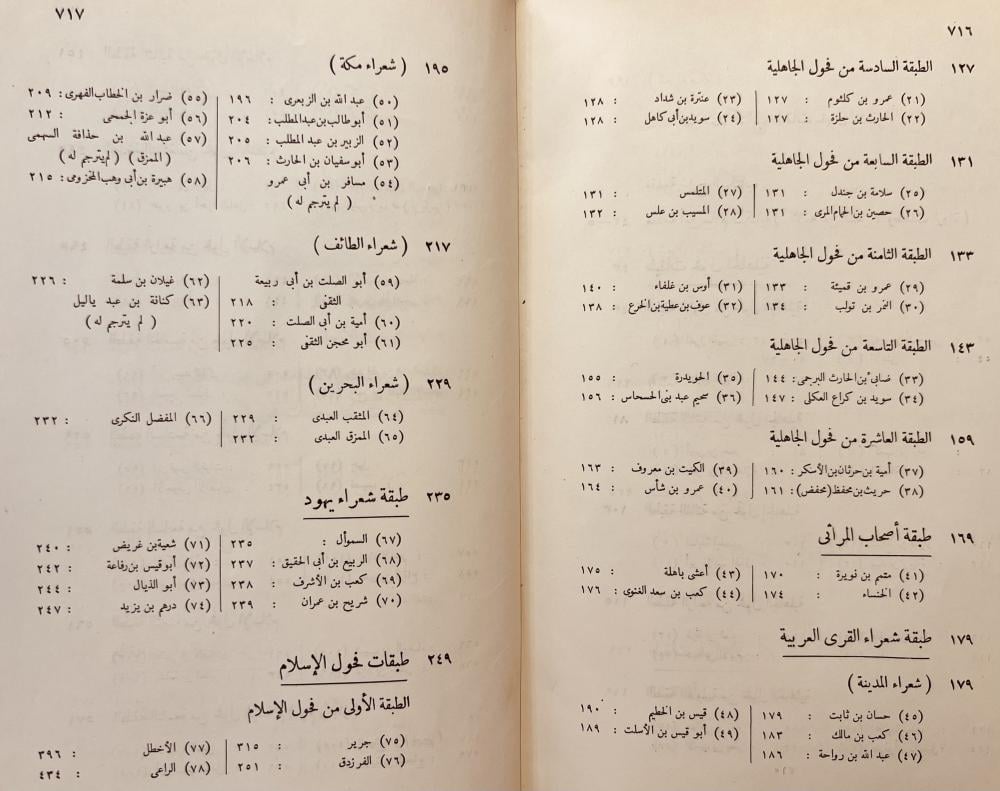 ٧١٦
١٢٧ الطبقة السادسة من فحول الجاهلية
(٢١) عمرو بن كلثوم : ١٢٧
(٢٢) الحارث بن حلزة : ١٢٧
(٢٣) عنترة بن شداد : ١٢٨
(٢٤) سويد بن أبى كاهل : ١٢٨
١٣١ الطبقة السابعة من فحول الجاهلية
(٢٥) سلامة بن جندل : ١٣١
(٢٦) حصين بن الحمام المرى : ١٣١
(٢٧) المتلمس : ١٣١
(٢٨) المسيب بن علس : ١٣٢
١٣٣ الطبقة الثامنة من فحول الجاهلية
(٢٩) عمرو بن قميئة : ١٣٣
(٣٠) النمر بن تولب : ١٣٤
(٣١) أوس بن غلفاء : ١٤٠
(٣٢) عوف بن عطية بن الخرع : ١٣٨
١٤٣ الطبقة التاسعة من فحول الجاهلية
(٣٣) ضابىء بن الحارث البرجمى : ١٤٤
(٣٤) سويد بن كراع العكلى : ١٤٧
(٣٥) الحويدرة : ١٥٥
(٣٦) سحيم عبد بنى الحسحاس : ١٥٦
١٥٩ الطبقة العاشرة من فحول الجاهلية
(٣٧) أمية بن حرثان بن الأسكر : ١٦٠
(٣٨) حريث بن محفظ (محفض) : ١٦١
(٣٩) الكميت بن معروف : ١٦٣
(٤٠) عمرو بن شأس : ١٦٤
١٦٩ طبقة أصحاب المراثى
(٤١) متمم بن نويرة : ١٧٠
(٤٢) الخنساء : ١٧٤
(٤٣) أعشى باهلة : ١٧٥
(٤٤) كعب بن سعد الغنوى : ١٧٦
١٧٩ طبقة شعراء القرى العربية
١٧٩ ( شعراء المدينة )
(٤٥) حسان بن ثابت : ١٧٩
(٤٦) كعب بن مالك : ١٨٣
(٤٧) عبد الله بن رواحة : ١٨٦
(٤٨) قيس بن الخطيم : ١٩٠
(٤٩) أبو قيس بن الأسلت : ١٨٩
٧١٧
١٩٥ ( شعراء مكة )
(٥٠) عبد الله بن الزبعرى : ١٩٦
(٥١) أبو طالب بن عبد المطلب : ٢٠٤
(٥٢) الزبير بن عبد المطلب : ٢٠٥
(٥٣) أبو سفيان بن الحارث : ٢٠٦
(٥٤) مسافر بن أبى عمرو
( لم يترجم له )
(٥٥) ضرار بن الخطاب الفهرى : ٢٠٩
(٥٦) أبو عزة الجمحى : ٢١٢
(٥٧) عبد الله بن حذافة السهمى
( الممزق ) ( لم يترجم له )
(٥٨) هبيرة بن أبى وهب المخزومى : ٢١٥
٢١٧ ( شعراء الطائف )
(٥٩) أبو الصلت بن أبى ربيعة
الثقفى : ٢١٨
(٦٠) أمية بن أبى الصلت : ٢٢٠
(٦١) أبو محجن الثقفى : ٢٢٥
(٦٢) غيلان بن سلمة : ٢٢٦
(٦٣) كنانة بن عبد ياليل
( لم يترجم له )
٢٢٩ ( شعراء البحرين )
(٦٤) المثقب العبدى : ٢٢٩
(٦٥) الممزق العبدى : ٢٣٢
(٦٦) المفضل النكرى : ٢٣٢
٢٣٥ طبقة شعراء يهود
(٦٧) السموأل : ٢٣٥
(٦٨) الربيع بن أبى الحقيق : ٢٣٧
(٦٩) كعب بن الأشرف : ٢٣٨
(٧٠) شريح بن عمران : ٢٣٩
(٧١) شعية بن غريض : ٢٤٠
(٧٢) أبو قيس بن رفاعة : ٢٤٢
(٧٣) أبو الذيال : ٢٤٤
(٧٤) درهم بن يزيد : ٢٤٧
٢٤٩ طبقات فحول الإسلام
الطبقة الأولى من فحول الإسلام
(٧٥) جرير : ٣١٥
(٧٦) الفرزدق : ٢٥١
(٧٧) الأخطل : ٣٩٦
(٧٨) الراعى : ٤٣٤